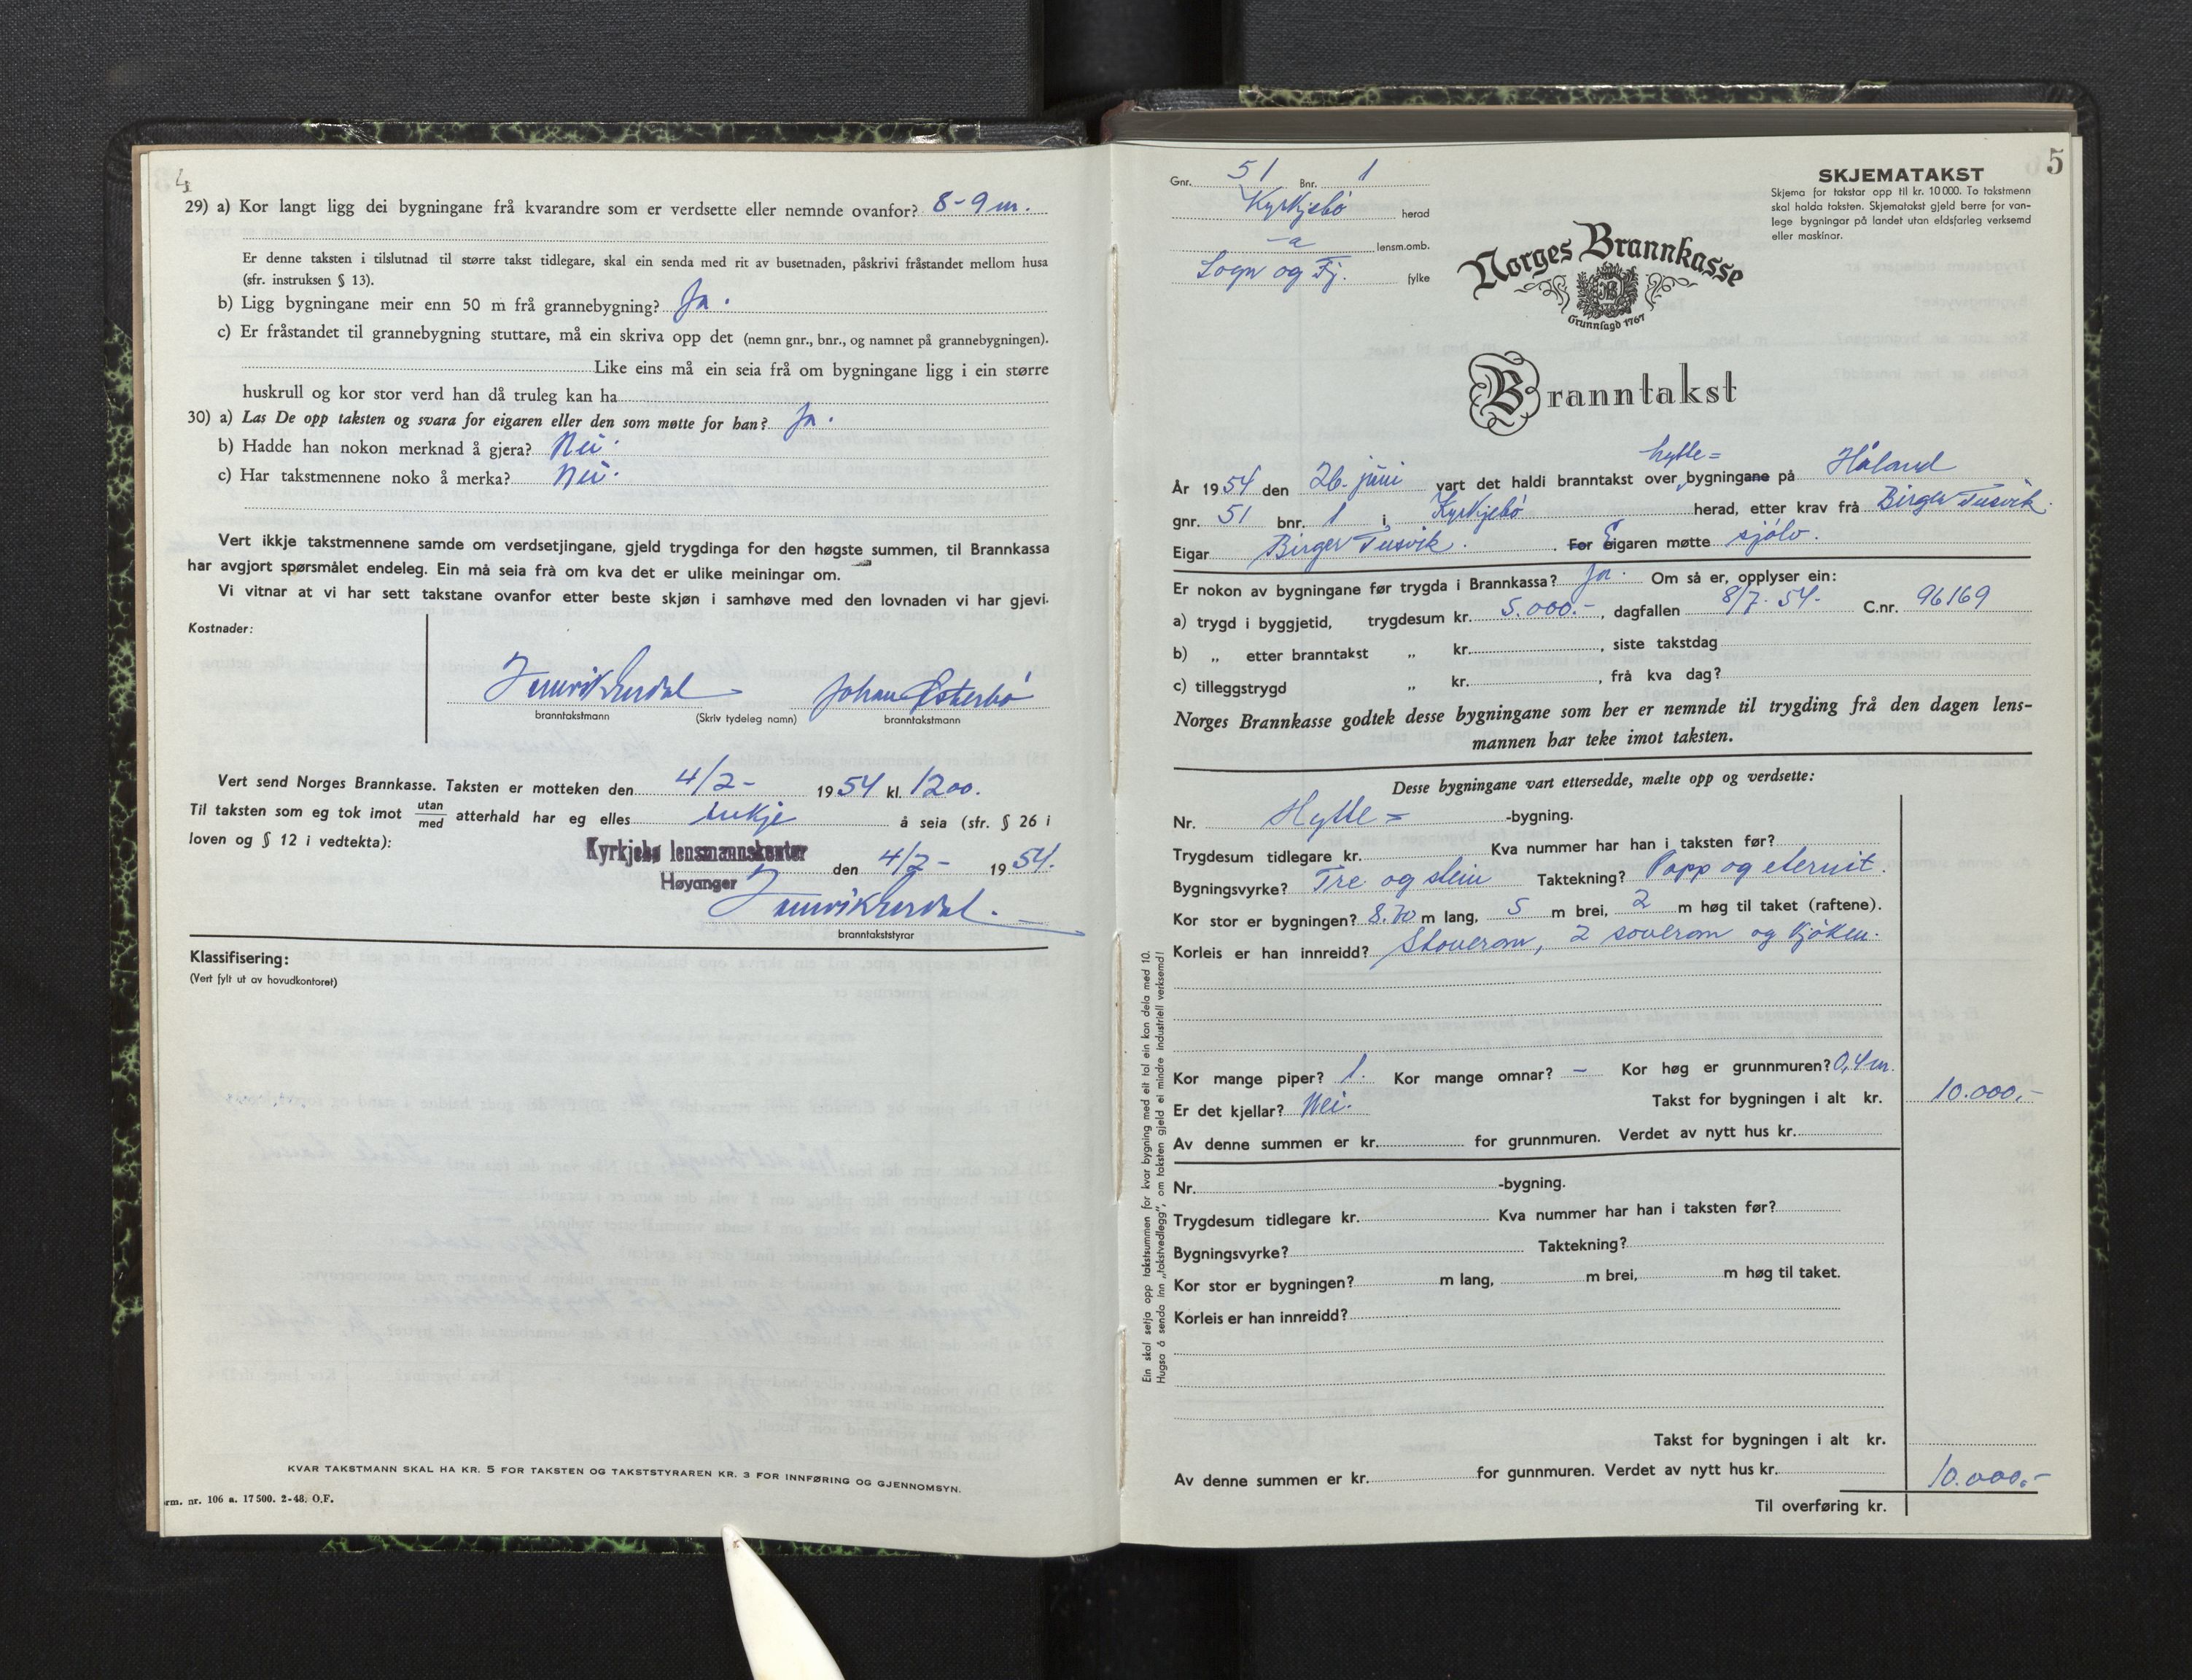 4
29) a) Kor langt ligg dei bygningane frå kvarandre som er verdsette eller nemnde ovanfor? 8-9 m.
Er denne taksten i tilslutnad til større takst tidlegare, skal ein senda med rit av busetnaden, påskrivi fråstandet mellom husa
(sfr. instruksen § 13).
b) Ligg bygningane meir enn 50 m frå grannebygning? Ja.
c) Er fråstandet til grannebygning stuttare, må ein skriva opp det (nemn gnr., bnr., og namnet på grannebygningen).
Like eins må ein seia frå om bygningane ligg i ein større
huskrull og kor stor verd han då truleg kan ha
30) a) Las De opp taksten og svara for eigaren eller den som møtte for han? Ja.
b) Hadde han nokon merknad å gjera? Nei.
c) Har takstmennene noko å merka? Nei.
Vert ikkje takstmennene samde om verdsetjingane, gjeld trygdinga for den høgste summen, til Brannkassa
har avgjort spørsmålet endeleg. Ein må seia frå om kva det er ulike meiningar om.
Vi vitnar at vi har sett takstane ovanfor etter beste skjøn i samhøve med den lovnaden vi har gjevi.
Kostnader:
Johan Østerbø
branntakstmann (Skriv tydeleg namn) branntakstmann
Vert send Norges Brannkasse. Taksten er motteken den 4/2- 1954 kl. 1200.
Til taksten som eg tok imot utan/med atterhald har eg elles inkje å seia (sfr. § 26 i
loven og § 12 i vedtekta):
Kyrkjebø lensmannskontor den 4/2- 1954.
Høyanger
branntakststyrar
Klassifisering:
(Vert fylt ut av hovudkontoret)
KVAR TAKSTMANN SKAL HA KR. 5 FOR TAKSTEN OG TAKSTSTYRAREN KR. 3 FOR INNFØRING OG GJENNOMSYN.
rm. nr. 106 a. 17 500. 2-48. O.F.
5
Gnr. 51 Bnr. 1
Kyrkjebø herad
-"- lensm.omb.
Sogn og Fj. fylke
SKJEMATAKST
Skjema for takstar opp til kr. 10 000. To takstmenn
skal halda taksten. Skjematakst gjeld berre for van-
lege bygningar på landet utan eldsfarleg verksemd
eller maskinar.
Norges Brannkasse
Grunnlagd 1767
Branntakst
hytte=
År 1954 den 26. juni vart det haldi branntakst over bygningane på Håland
gnr. 51 bnr. 1 i Kyrkjebø herad, etter krav frå Birger Tusvik.
Eigar Birger Tusvik. For Eigaren møtte sjølv.
Er nokon av bygningane før trygda i Brannkassa? Ja. Om så er, opplyser ein:
a) trygd i byggjetid, trygdesum kr. 5.000.-, dagfallen 8/7. 54. C.nr. 96169
b) „ etter branntakst „ kr. , siste takstdag
c) tilleggstrygd „ kr. , frå kva dag?
Norges Brannkasse godtek desse bygningane som her er nemnde til trygding frå den dagen lens-
mannen har teke imot taksten.
Desse bygningane vart ettersedde, mælte opp og verdsette:
Nr. Hytte= -bygning.
Trygdesum tidlegare kr. Kva nummer har han i taksten før?
Bygningsvyrke? Tre og stein Taktekning? Papp og eternit.
Kor stor er bygningen? 8.70 m lang, 5 m brei, 2 m høg til taket (raftene).
Korleis er han innreidd? Stoverom, 2 soverom og kjøken.
Kor mange piper? 1. Kor mange omnar? - Kor høg er grunnmuren? 0,4 m.
Er det kjellar? Nei. Takst for bygningen i alt kr. 10.000,-
Av denne summen er kr. for grunnmuren. Verdet av nytt hus kr.
Nr. -bygning.
Trygdesum tidlegare kr. Kva nummer har han i taksten før?
Bygningsvyrke? Taktekning?
Kor stor er bygningen? m lang, m brei, m høg til taket.
Korleis er han innreidd?
Takst for bygningen i alt kr.
Av denne summen er kr. for gunnmuren. Verdet av nytt hus kr.
10.000,-
Til overføring kr.
Ein skal setja opp takstsummen for kvar bygning med eit tal ein kan dela med 10.
Hugsa å senda inn „takstvedlegg", om taksten gjeld ei mindre industriell verksemd!